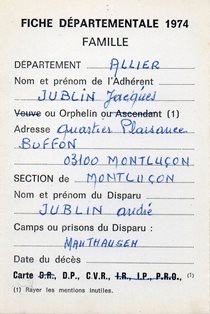 FICHE DÉPARTEMENTALE 1974
FAMILLE
DÉPARTEMENT ALLIER
Nom et prénom de l'Adhérent
JUBLIN Jacques
Veuve ou Orphelin ou Ascendant (1)
Adresse quartier Plaisance
BUFFON
03100 MONTLUÇON
SECTION de MONTLUÇON
Nom et prénom du Disparu
JUBLIN andré
Camps ou prisons du Disparu :
MAUTHAUSEN
Date du décès
Carte D.R., D.P., C.V.R., I.R., I.P., P.R.O., (1)
(1) Rayer les mentions inutiles.